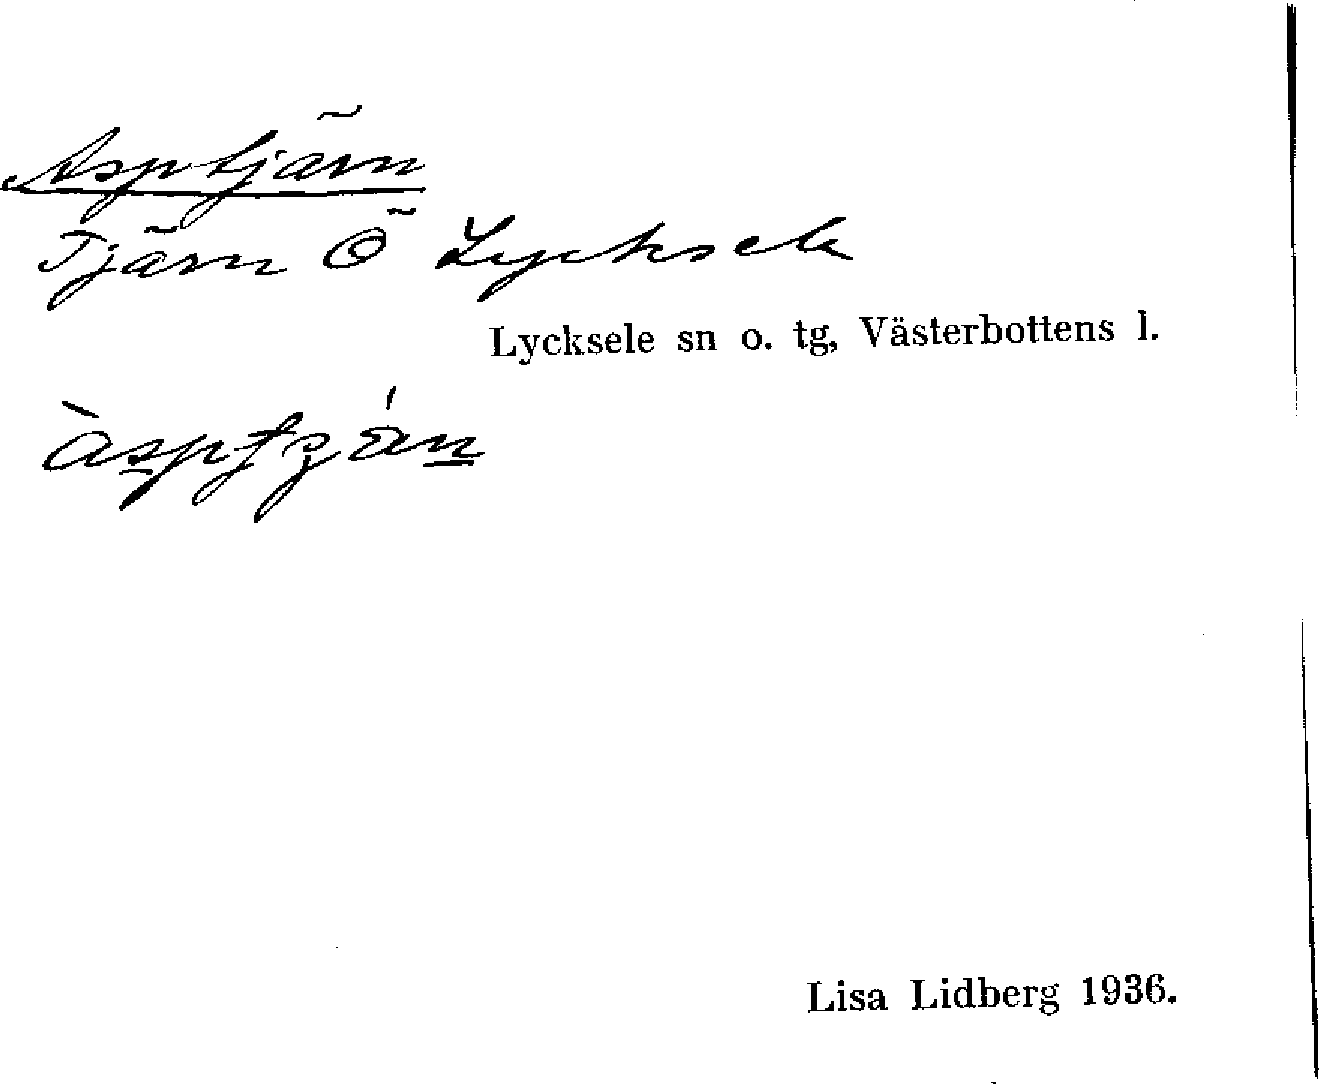 Asptjärn
Tjärn Ö Lycksele
Lycksele sn o. tg, Västerbottens l.
Lisa Lidberg 1936.